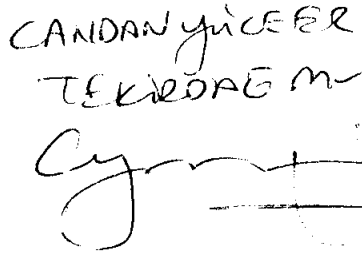 CANDAN YÜCEER
TEKİRDAĞ M